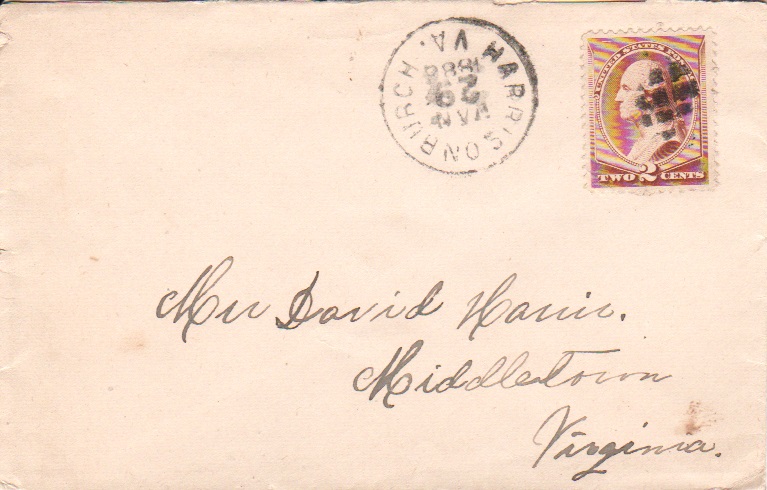 HARRISONBURGH, VA.
1886
UNITED STATES POSTAGE
TWO 2 CENTS
Mrs David Harris.
Middletown
Virginia.